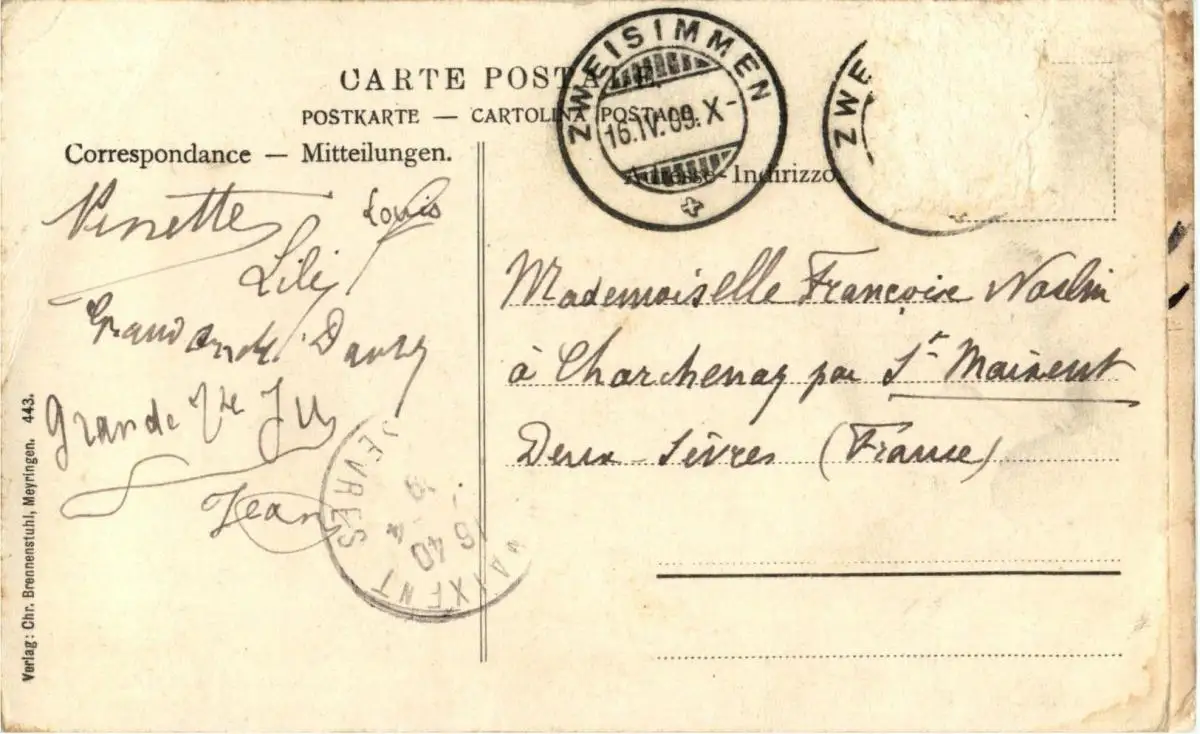 CARTE POSTALE
POSTKARTE — CARTOLINA POSTALE.
Correspondance — Mitteilungen.
Adresse - Indirizzo.
ZWEISIMMEN
16.IV.09.X-
ZWE
Louis
Lili
Grand
Grande
Jean
Mademoiselle Françoise
à Charchenay par St Maixent
Deux-Sèvres (France)
SEVRES
16 40
Verlag: Chr. Brennenstuhl, Meyringen. 443.